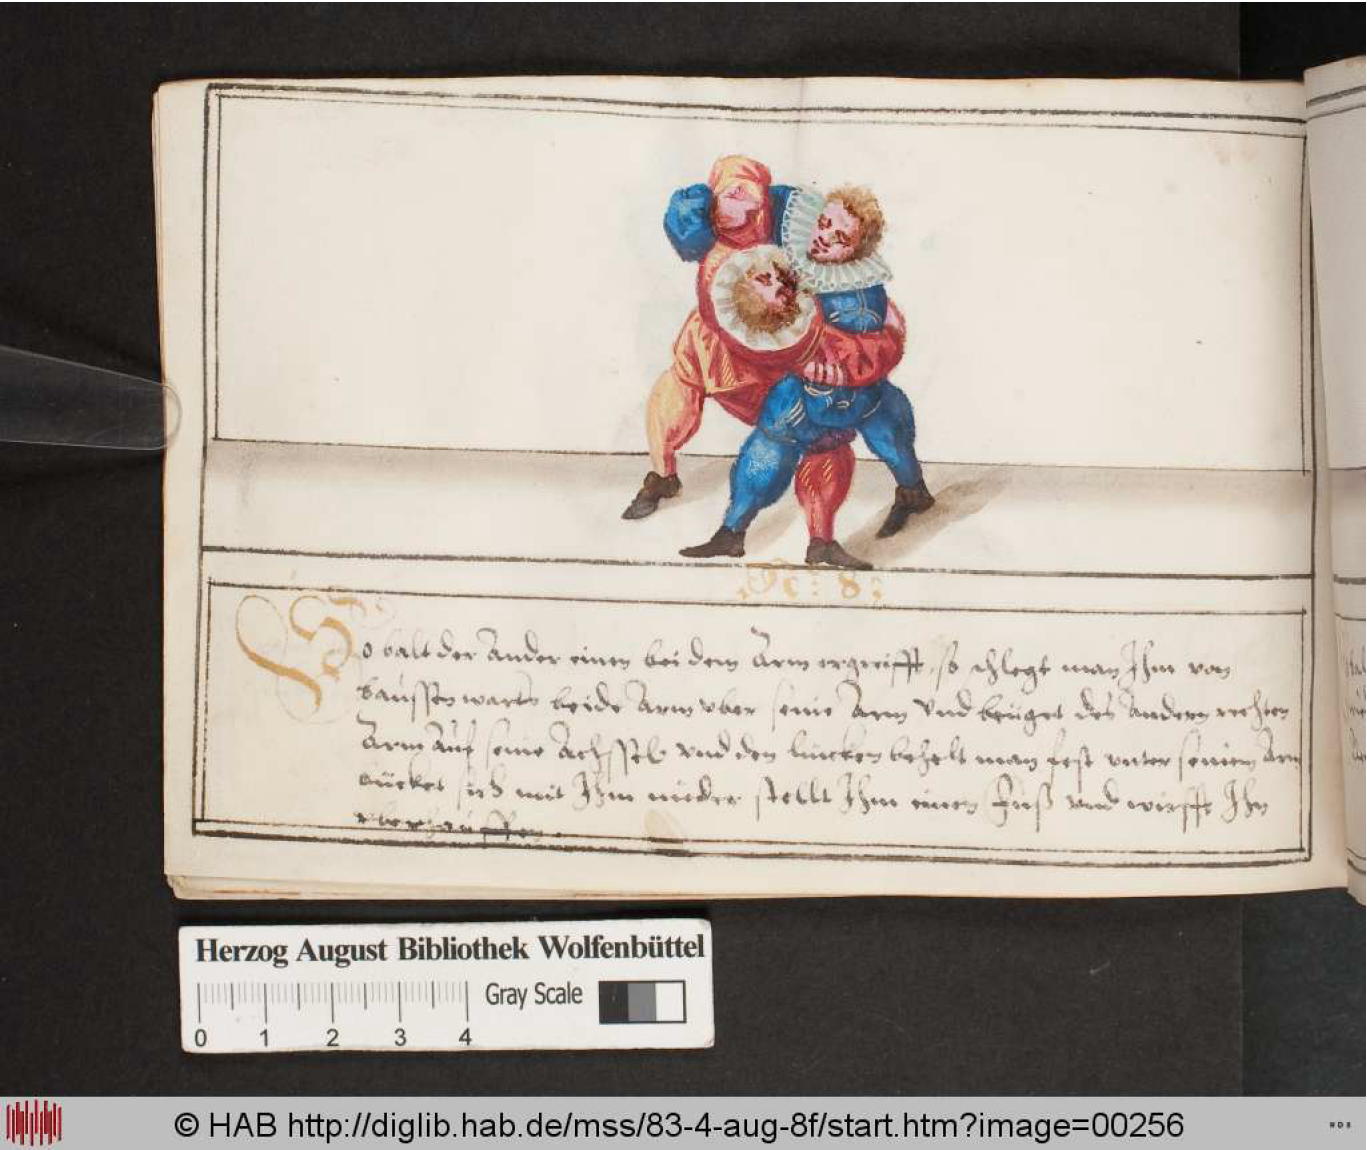 N: 8:
So balt der Ander einen bei dem Arm ergreifft, so schlegt man Ihm von
baussen warts beide Arm vber seine Arm vnd beuget des Andern rechten
Arm Auf seine Achssel vnd den lincken behelt man fest vnter seinem Arm
bücket sich mit Ihm nieder stellt Ihm einen Fuß vnd wirfft Ihn
vberhauffen.
Herzog August Bibliothek Wolfenbüttel
Gray Scale
0 1 2 3 4
© HAB http://diglib.hab.de/mss/83-4-aug-8f/start.htm?image=00256